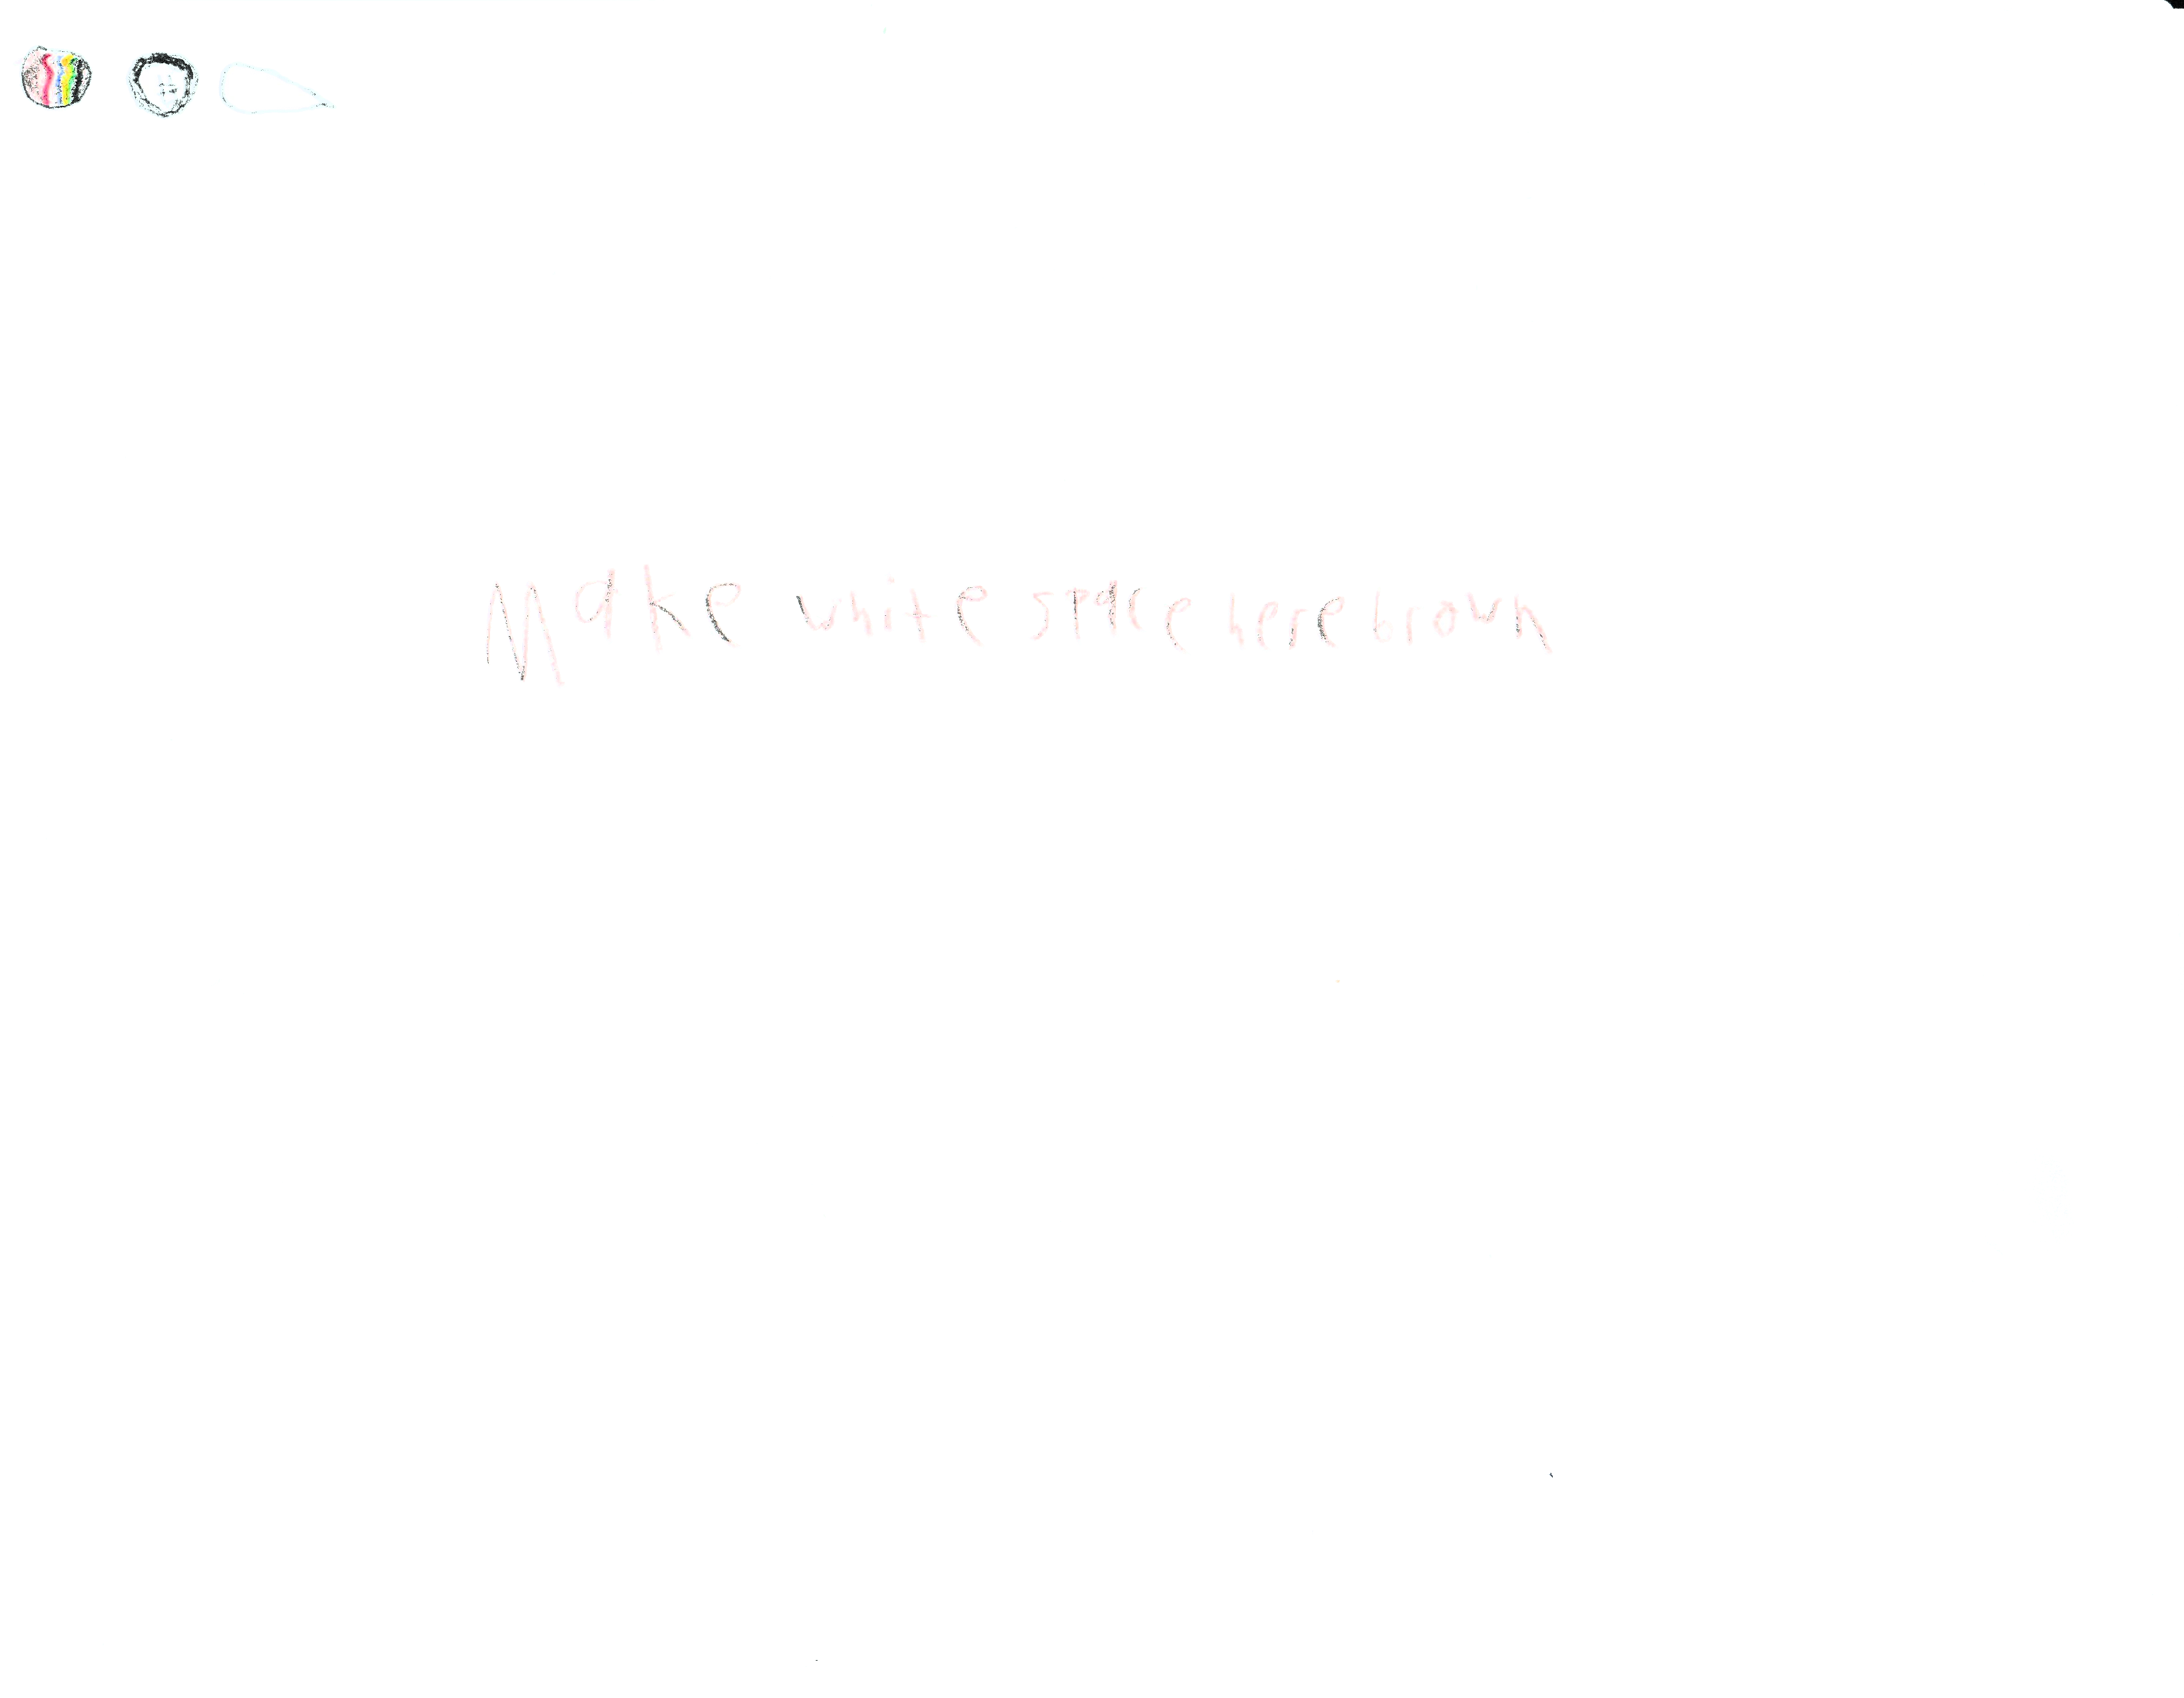 Make white space here brown